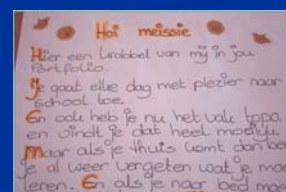 Hoi meissie
Hier een krabbel van mij in jou
Portfolio.
Je gaat elke dag met plezier naar
school toe.
En ook heb je nu het vak topo,
en vindt je dat heel moeilijk.
Maar als je thuis komt dan ben
je al weer vergeten wat je moe
leren. En als je naar bed moe